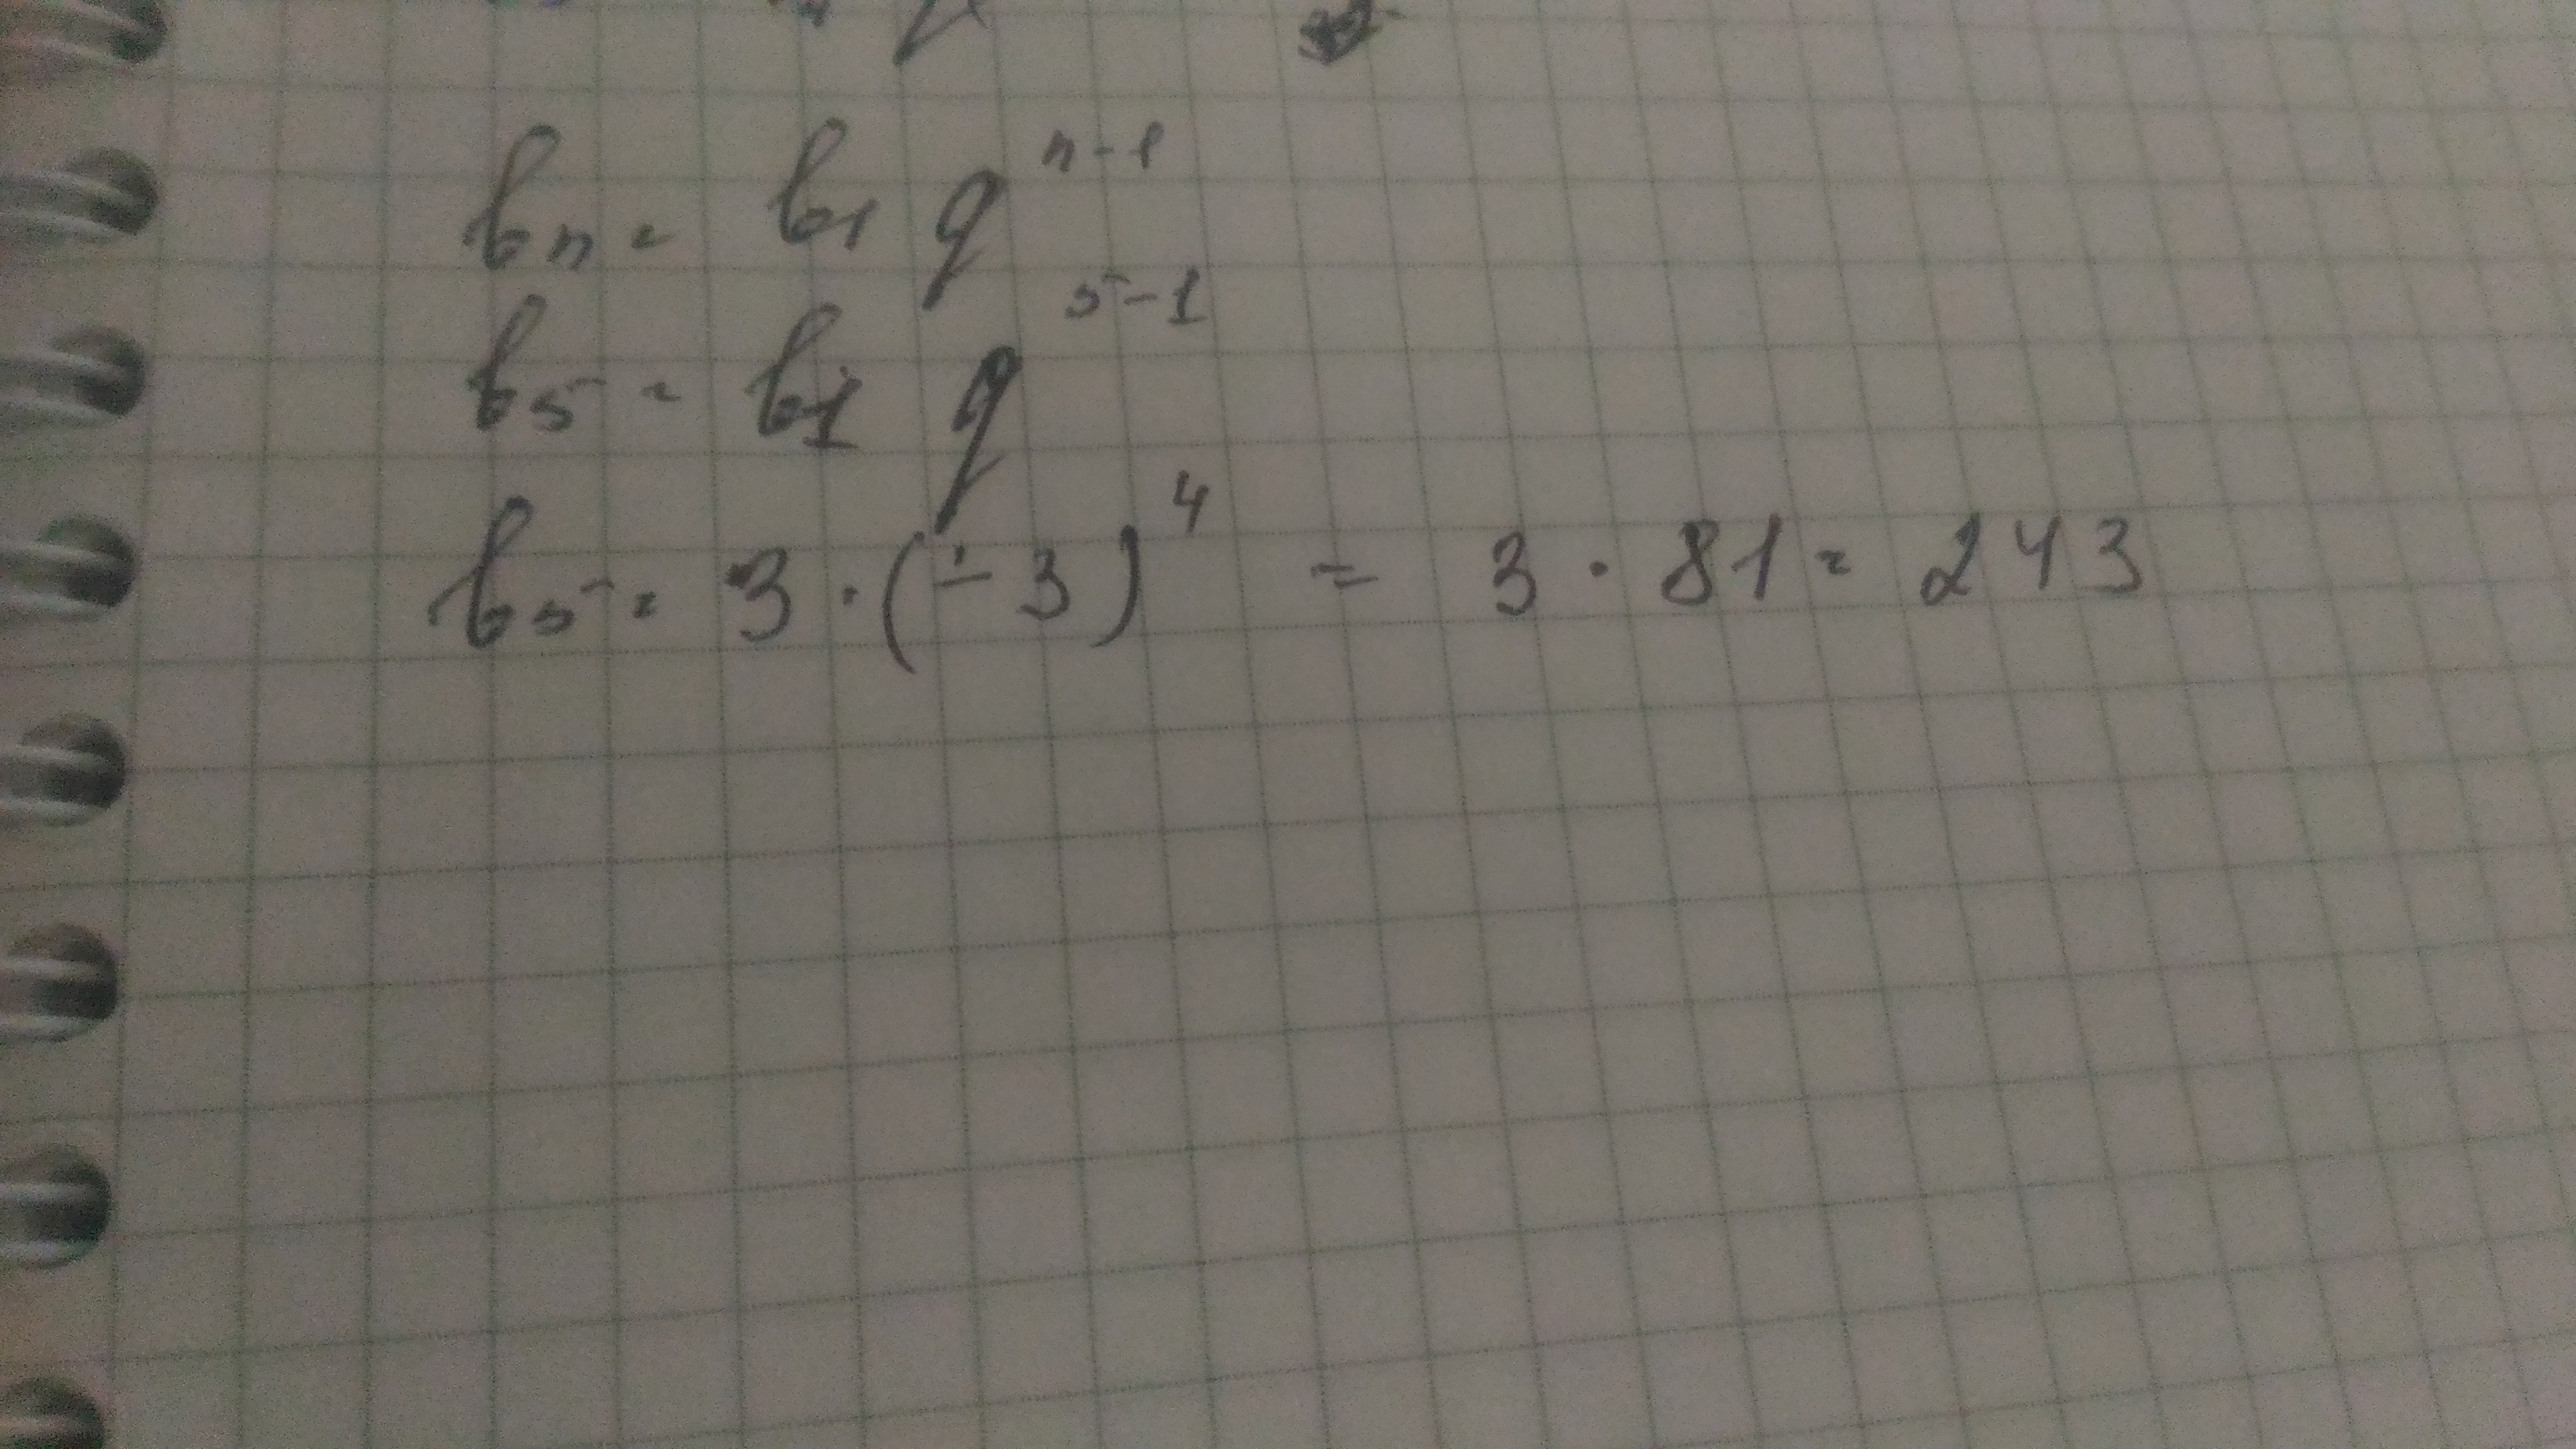 bn = b1 q^n-1
b5 = b1 q^5-1
b5 = 3 · (-3)^4 = 3 · 81 = 243